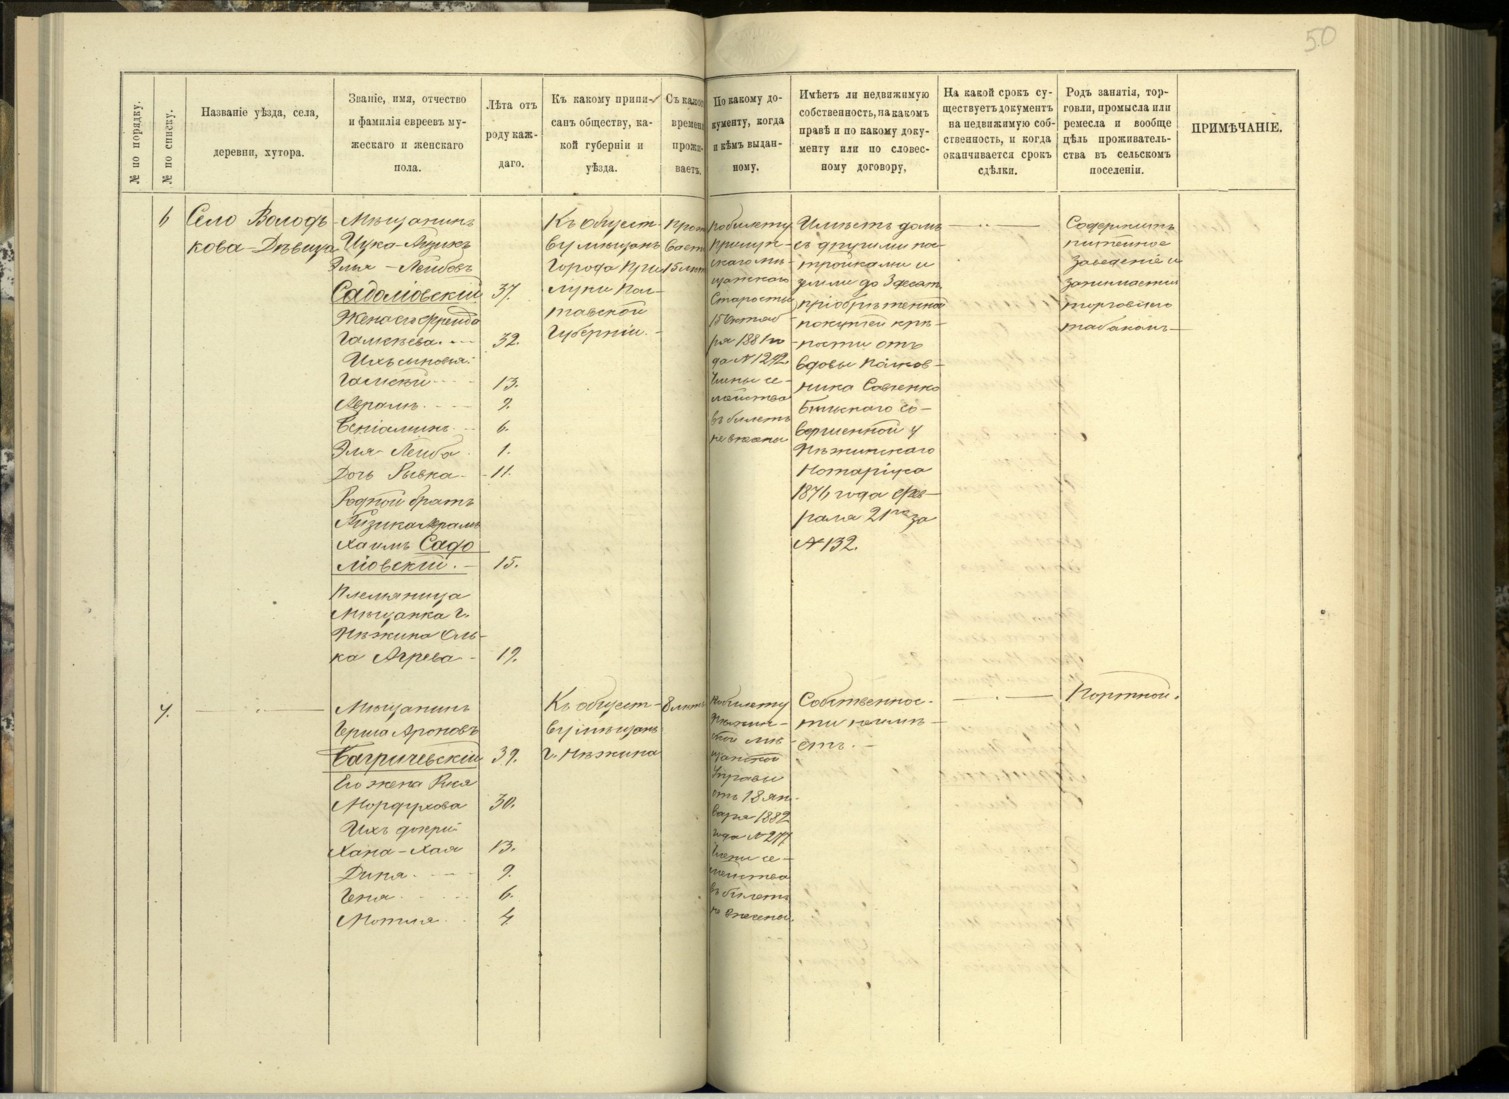 50
№ по порядку.
№ по списку.
Названіе уѣзда, села,
деревни, хутора.
Званіе, имя, отчество
и фамилія евреевъ му-
жескаго и женскаго
пола.
Лѣта отъ
роду каж-
даго.
Къ какому припи-
санъ обществу, ка-
кой губерніи и
уѣзда.
Съ какого
времени
прожи-
ваетъ.
По какому до-
кументу, когда
и кѣмъ выдан-
ному.
Имѣетъ ли недвижимую
собственность, на какомъ
правѣ и по какому доку-
менту или по словес-
ному договору,
На какой срокъ су-
ществуетъ документъ
на недвижимую соб-
ственность, и когда
оканчивается срокъ
сдѣлки.
Родъ занятія, тор-
говли, промысла или
ремесла и вообще
цѣль проживатель-
ства въ сельскомъ
поселеніи.
ПРИМѢЧАНІЕ.
6
Село Володь-
кова-Дѣвица
Мѣщанинъ
Ицко-Айзикъ
Эліа-Лейбовъ
Садоміовскій 37.
Жена его Фрейда
32.
Ихъ сыновья:
13.
Абрамъ 9.
Веніаминъ 6.
Эля-Лейба 1.
Дочь Рывка 11.
Родной братъ
Айзика Абрамъ
Хаимъ Садо
міовскій. 15.
Племяница
Мѣщанка г.
Нѣжина
19.
Къ общест-
ву мѣщанъ
Города При-
луки Пол-
тавской
Губерніи.
15 лѣтъ
По билету
Прилук-
скаго мѣ-
щанскаго
Старосты
15 Октяб-
ря 1881 го
да № 1292
Члены се-
мейства
въ билетъ
не вписаны
Имѣетъ домъ
съ другими по-
стройками и
землю до 3 десят.
пріобрѣтенной
покупкой крѣ-
пости отъ
вдовы Полков-
ника
со-
вершенной у
Нѣжинскаго
Нотаріуса
1876 года Фев-
раля 21го за
№ 132.
Содержитъ
питейное
заведеніе и
занимается
торговлею
табакомъ
7.
Мѣщанинъ
Герша Ароновъ
Багричевскій 39.
Его жена
Мордухова 30.
Ихъ дочери
Хана-Хая 13.
Дина 9.
Геня 6.
Мотля 4.
Къ общест-
ву мѣщанъ
г. Нѣжина
8 лѣтъ
По билету
Нѣжин-
ской мѣ-
щанской
Управы
отъ 18 Ян-
варя 1882
года № 277
Члены се-
мейства
въ билетъ
не внесены.
Собственнос-
ти не имѣ-
етъ.
Портной.